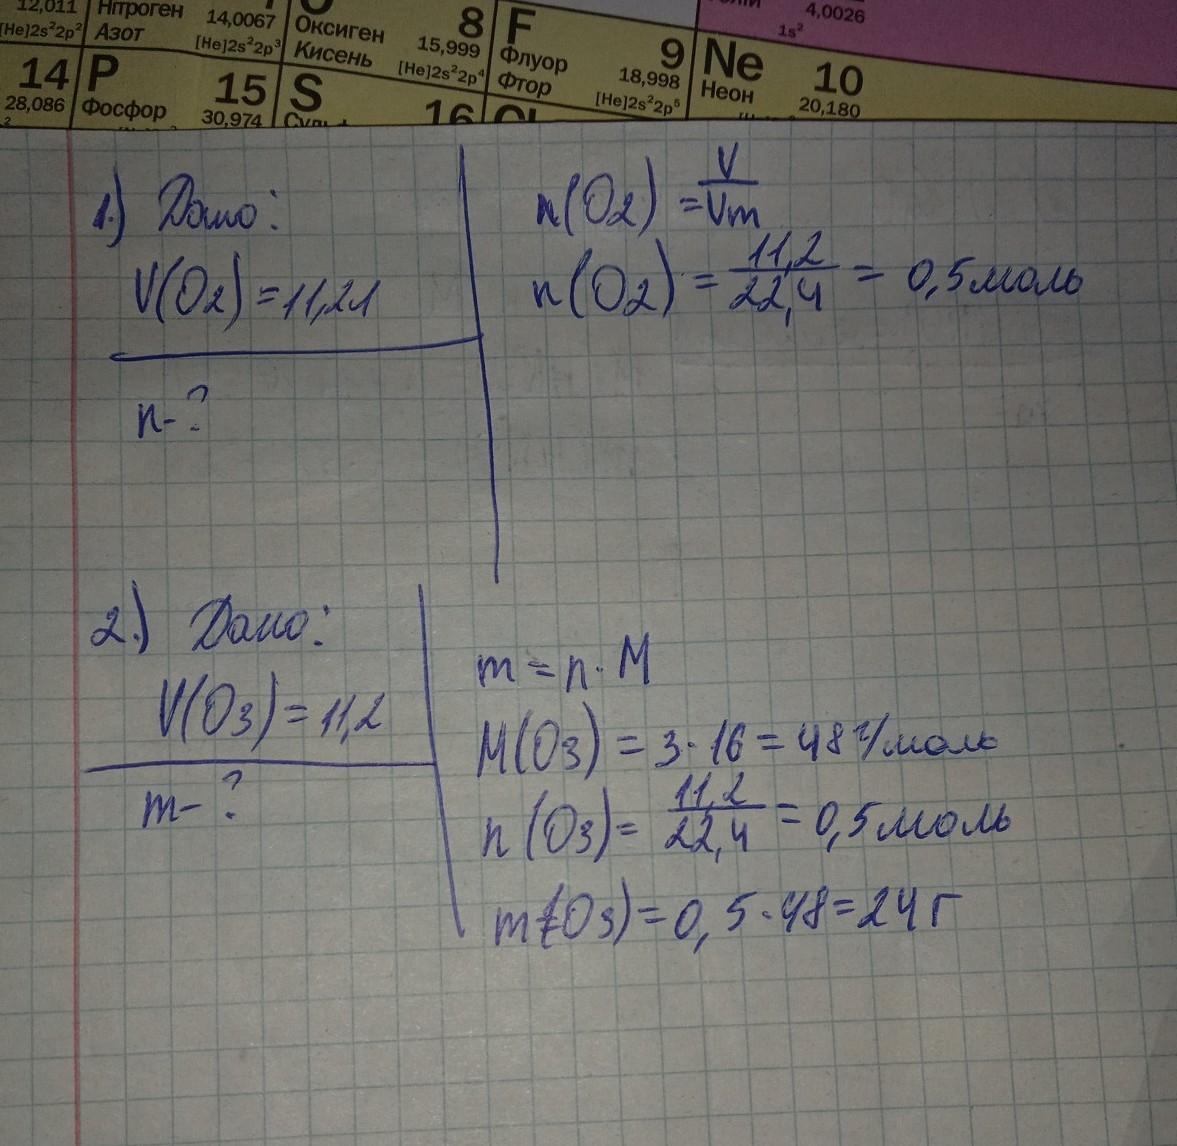 12,011 Нітроген 14,0067 Оксиген 8 F 4,0026
[He]2s²2p² Азот [He]2s²2p³ Кисень 15,999 Флуор 9 1s²
[He]2s²2p⁴ Фтор 18,998 Ne 10
14 P 15 S [He]2s²2p⁵ Неон 20,180
28,086 Фосфор 30,974 16
1.) Дано:
V(O2) = 11,2л
n - ?
n(O2) = V/Vm
n(O2) = 11,2/22,4 = 0,5 моль
2.) Дано:
V(O3) = 11,2
m - ?
m = n · M
M(O3) = 3 · 16 = 48 г/моль
n(O3) = 11,2/22,4 = 0,5 моль
m(O3) = 0,5 · 48 = 24 г